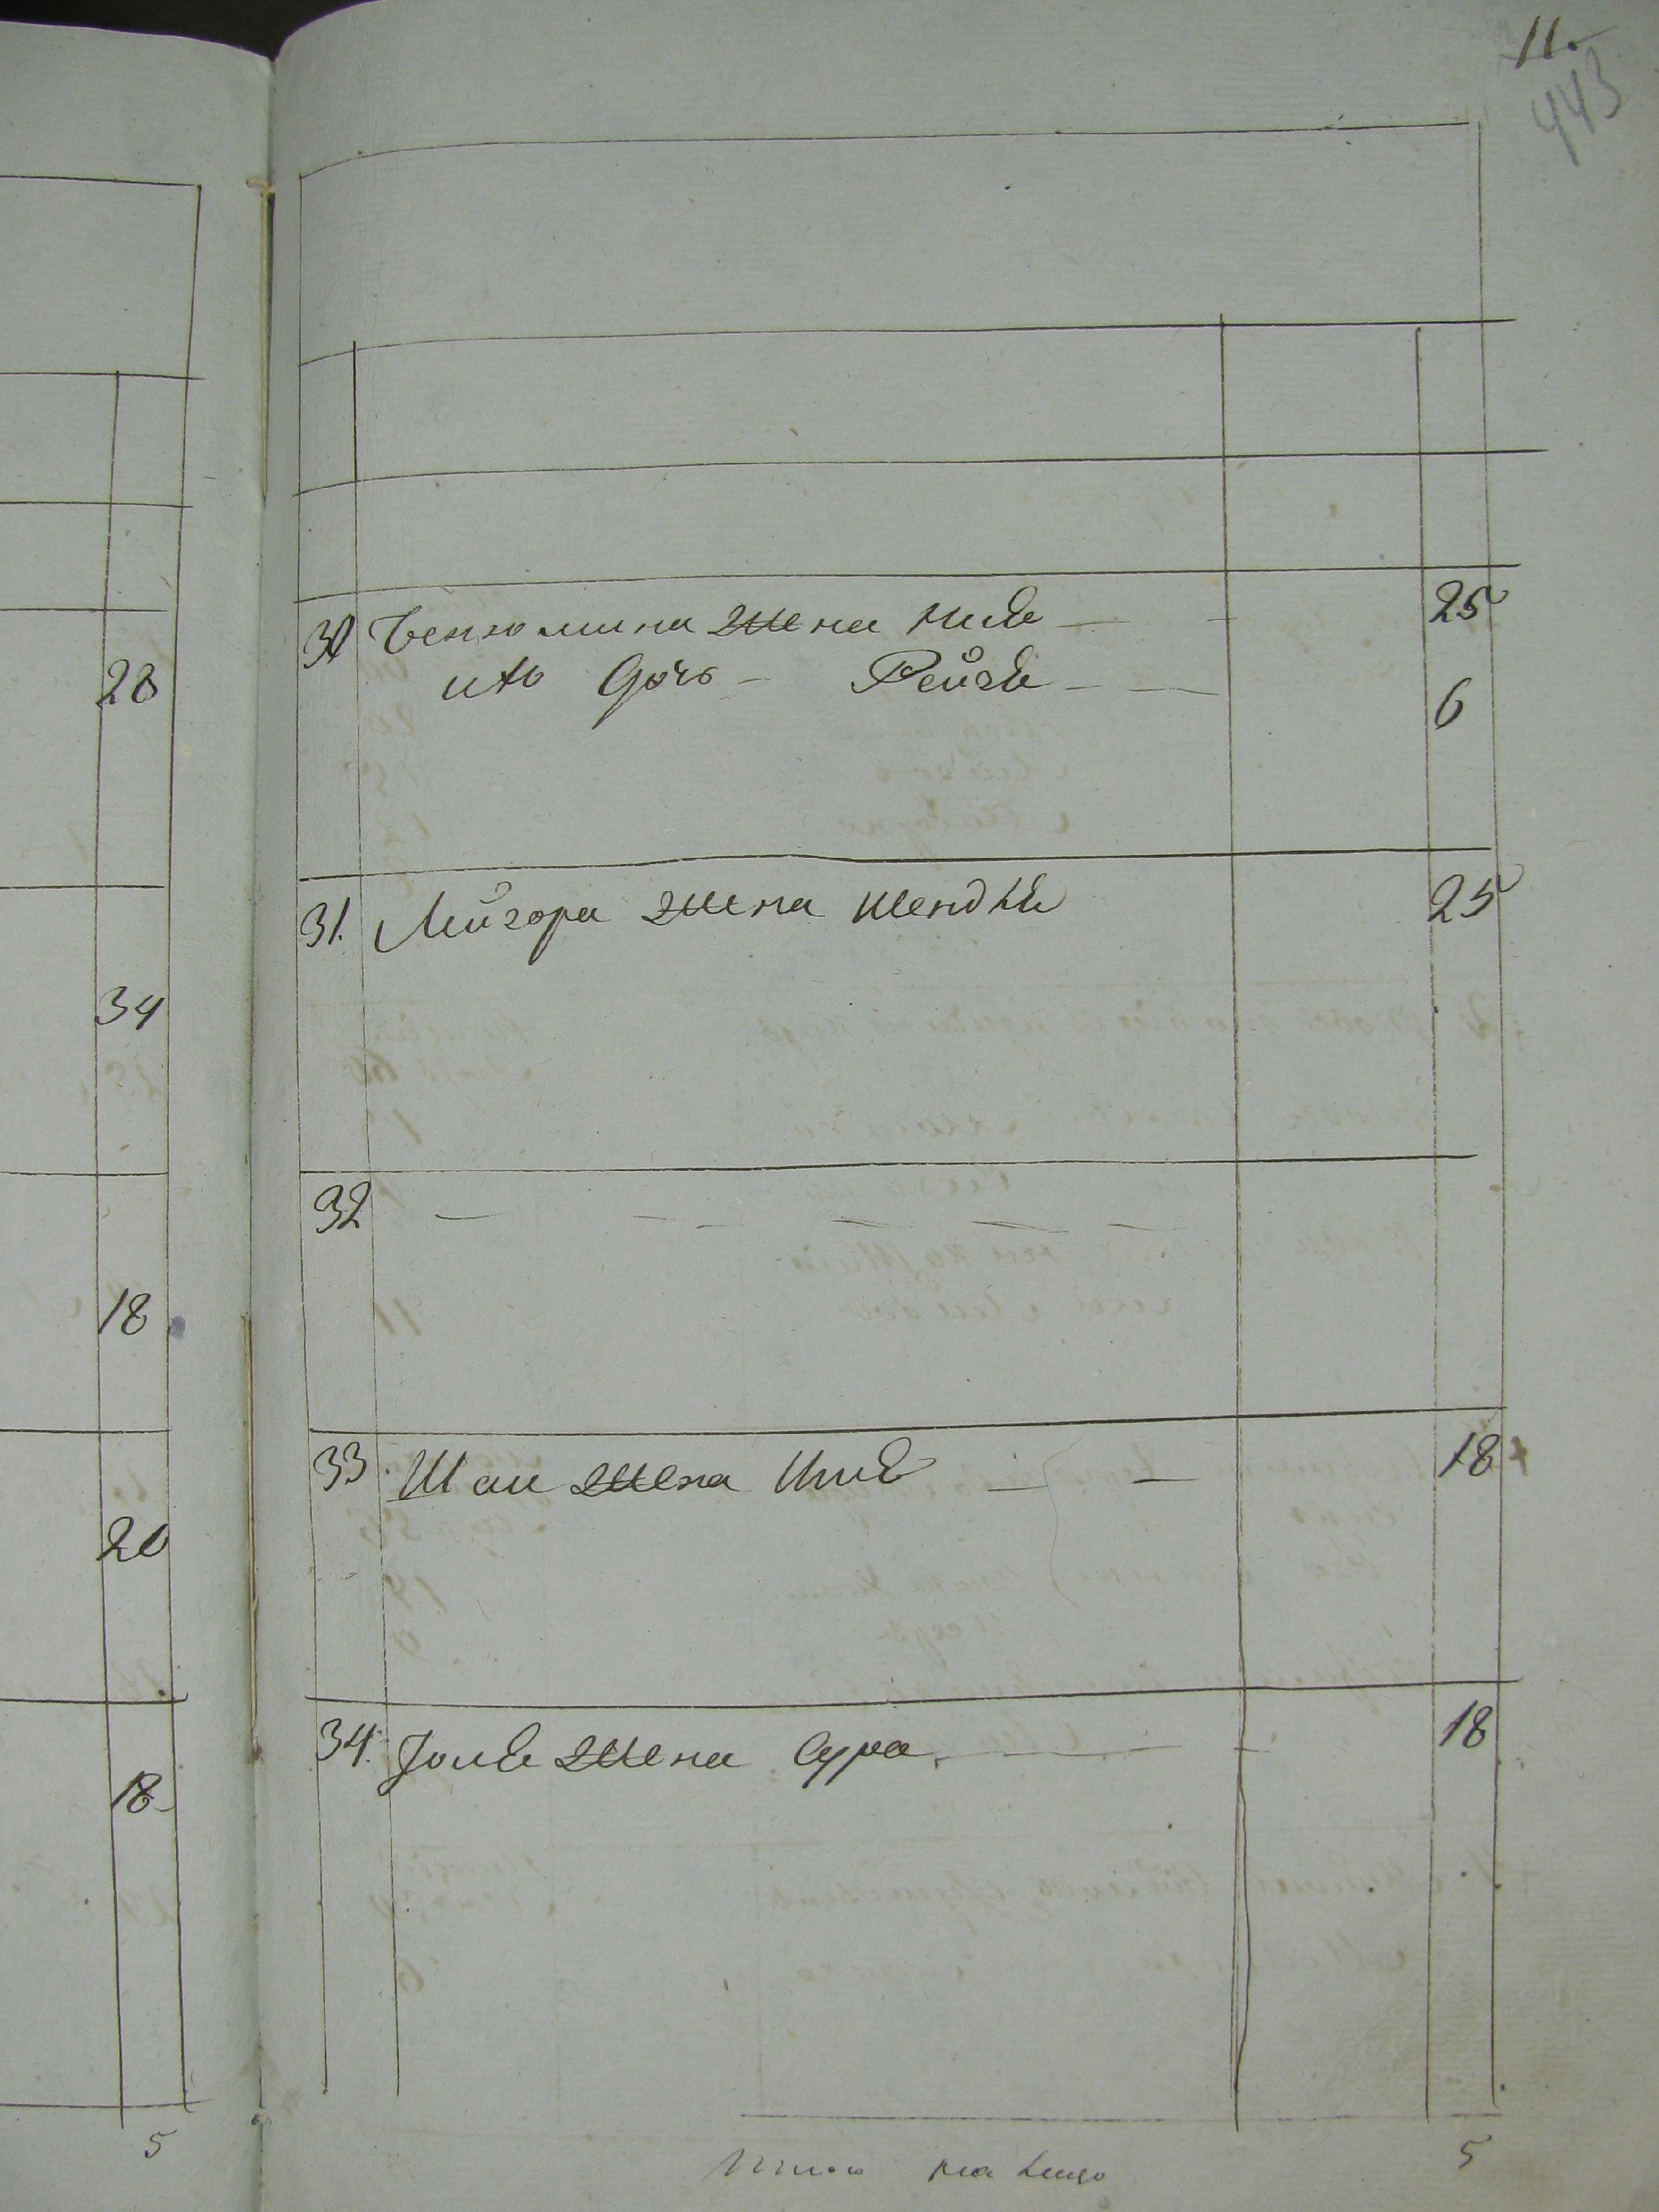 11.
443
30 Бенюмина жена Мие 25
ихъ дочь Рейзе 6
31. Лейзора жена Шендле 25
32
33. жена 18
34. жена Сура 18
Итого на лицо 5
28
34
18
20
18
5